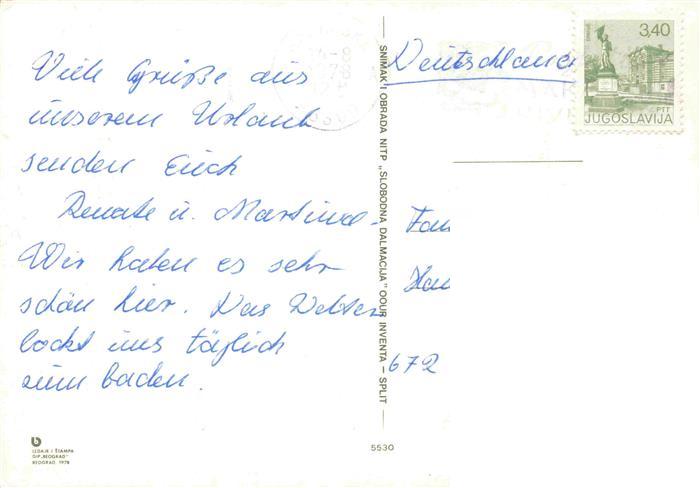 Viele Grüße aus
unserem Urlaub
senden Euch
Renate u. Martina
Wir haben es sehr
schön hier. Das Wetter
lockt uns täglich
zum baden.
IZDAJE I ŠTAMPA
GIP „BEOGRAD"
BEOGRAD, 1978
5530
SNIMAK I OBRADA NITP „SLOBODNA DALMACIJA" OOUR INVENTA — SPLIT
Deutschland
3,40
PTT
JUGOSLAVIJA
Fam
672